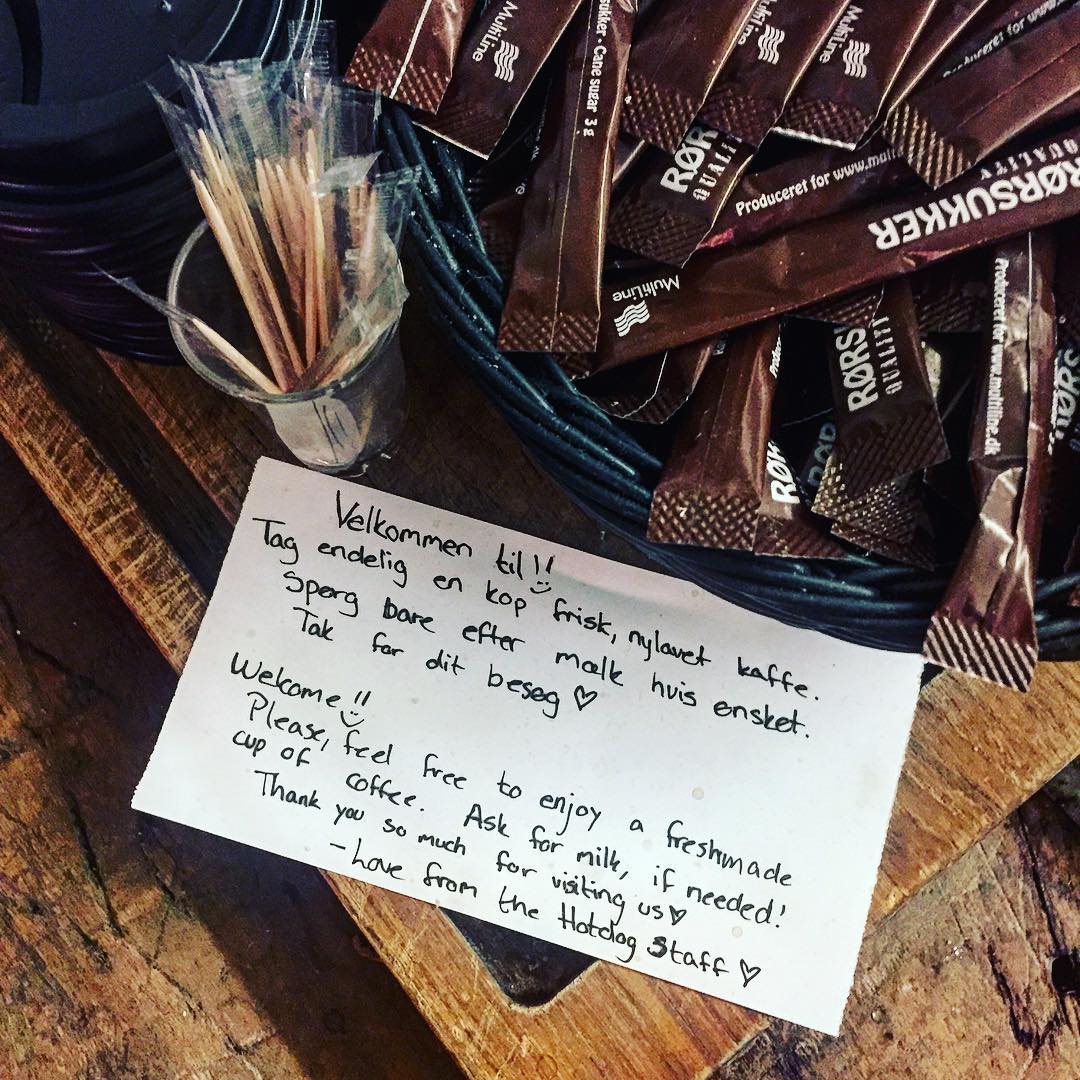 MultiLine
sukker • Cane sugar 3 g
MultiLine
MultiLine
Produceret for www.mult
RØR
QUALI
Produceret for www.multi
RØRSUKKER
QUALITY
MultiLine
RØRS
QUALITY
Produceret for www.multiline.dk
RØR
RØRS
Velkommen til!!
Tag endelig en kop frisk, nylavet kaffe.
Spørg bare efter mælk hvis ønsket.
Tak for dit besøg ♡
Welcome!!
Please, feel free to enjoy a freshmade
cup of coffee. Ask for milk, if needed!
Thank you so much for visiting us ♡
- Love from the Hotdog Staff ♡